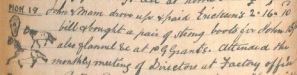 MON 19 John & Sam drove up & paid Enselin's 2-16-10
bill & bought a pair of strong boots for John Bap
also flannel &c at 109 Grands. Attended the
monthly meeting of Directors at Factory office